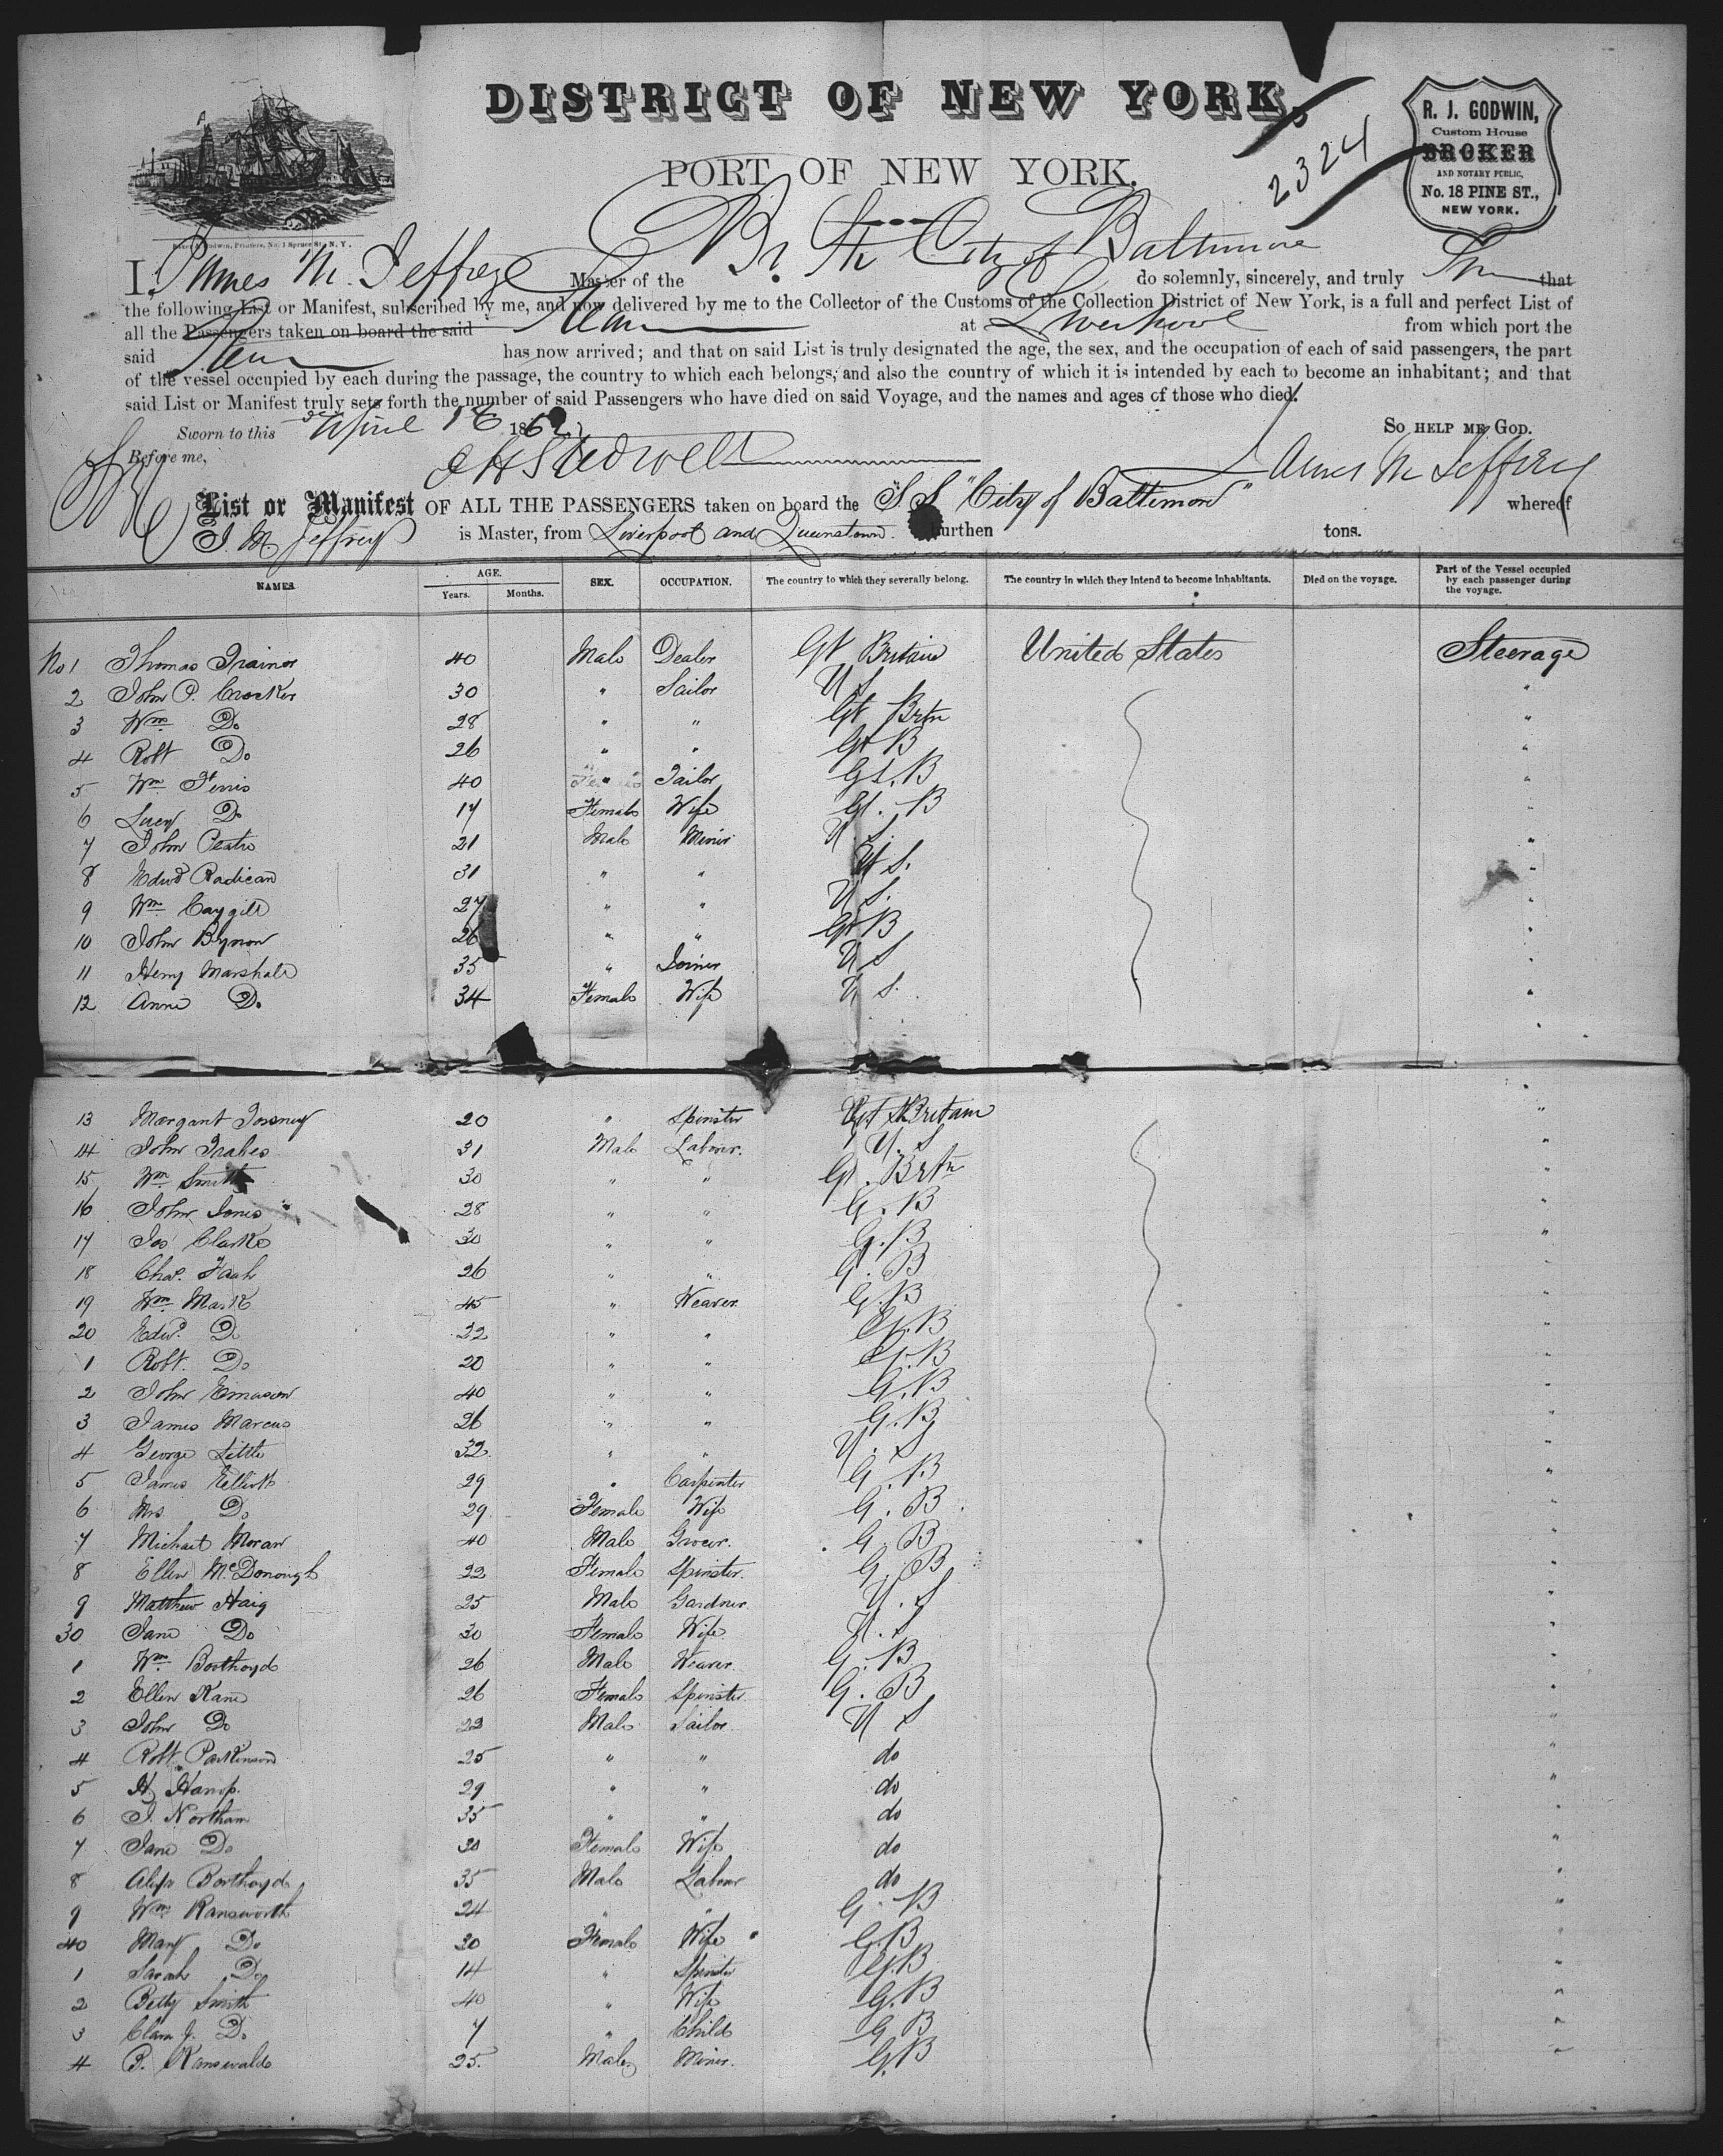 DISTRICT OF NEW YORK,
PORT OF NEW YORK.
2324
R. J. GODWIN,
Custom House
BROKER
AND NOTARY PUBLIC,
No. 18 PINE ST.,
NEW YORK.
Godwin, Printers, No. 1 Spruce St., N. Y.
I, James M. Jeffrey Master of the Br. Str City of Baltimore do solemnly, sincerely, and truly that
the following List or Manifest, subscribed by me, and now delivered by me to the Collector of the Customs of the Collection District of New York, is a full and perfect List of
all the Passengers taken on board the said at Liverpool from which port the
said has now arrived; and that on said List is truly designated the age, the sex, and the occupation of each of said passengers, the part
of the vessel occupied by each during the passage, the country to which each belongs, and also the country of which it is intended by each to become an inhabitant; and that
said List or Manifest truly sets forth the number of said Passengers who have died on said Voyage, and the names and ages of those who died.
Sworn to this April 16 186 So HELP ME GOD.
Before me, James M Jeffrey
List or Manifest OF ALL THE PASSENGERS taken on board the S S "City of Baltimore" whereof
J. M Jeffrey is Master, from Liverpool and Queenstown. burthen tons.
NAMES AGE. Years. Months. SEX. OCCUPATION. The country to which they severally belong. The country in which they intend to become inhabitants. Died on the voyage. Part of the Vessel occupied by each passenger during the voyage.
No 1 Thomas Trainor 40 Male Dealer Gt Britain United States Steerage
2 John P. Crocker 30 " Sailor U S "
3 Wm Do 28 " " Gt Brtn "
4 Robt Do 26 " " Gt B "
5 Wm Ferris 40 " Tailor Gt. B "
6 Lucy Do 17 Female Wife Gt. B "
7 John 21 Male Miner U. S. "
8 Edwd Radican 31 " " U S. "
9 Wm Caygill 27 " " U S. "
10 John Bynon 26 " " Gt B "
11 Henry Marshall 35 " Joiner U S "
12 Anne Do 34 Female Wife U S. "
13 Margaret 20 " Spinster Gt Britain "
14 John 31 Male Labour. U. S "
15 Wm Smith 30 " " Gt. Brtn "
16 John Jones 28 " " G. B "
17 Jos Clarke 30 " " G. B "
18 Chas. 26 " " G. B "
19 Wm Mark 45 " Weaver G. B "
20 Edwd. Do 22 " " G. B "
1 Robt. Do 20 " " G. B "
2 John 40 " " G. B "
3 James Marcus 26 " " G. B "
4 George Little 32 " " U. S "
5 James Elliott 29 " Carpenter G. B "
6 Mrs Do 29 Female Wife G. B "
7 Michael Moran 40 Male Grocer. G. B "
8 Ellen McDonough 22 Female Spinster. G. B "
9 Matthew Haig 25 Male Gardner U. S "
30 Jane Do 30 Female Wife U. S "
1 Wm Boothoyd 26 Male Weaver. G. B "
2 Ellen Kane 26 Female Spinster G. B "
3 John Do 23 Male Sailor U S "
4 Robt. Parkinson 25 " " do "
5 H. 29 " " do "
6 J. Northam 35 " " do "
7 Jane Do 30 Female Wife do "
8 Boothoyd 35 Male Labour do "
9 Wm Ransworth 24 " " G. B "
40 Mary Do 20 Female Wife G. B "
1 Sarah Do 14 " Spinster G. B "
2 Betty Smith 40 " Wife G. B "
3 Clara J. Do 7 " Child G B "
4 25. Male Miner. G. B "